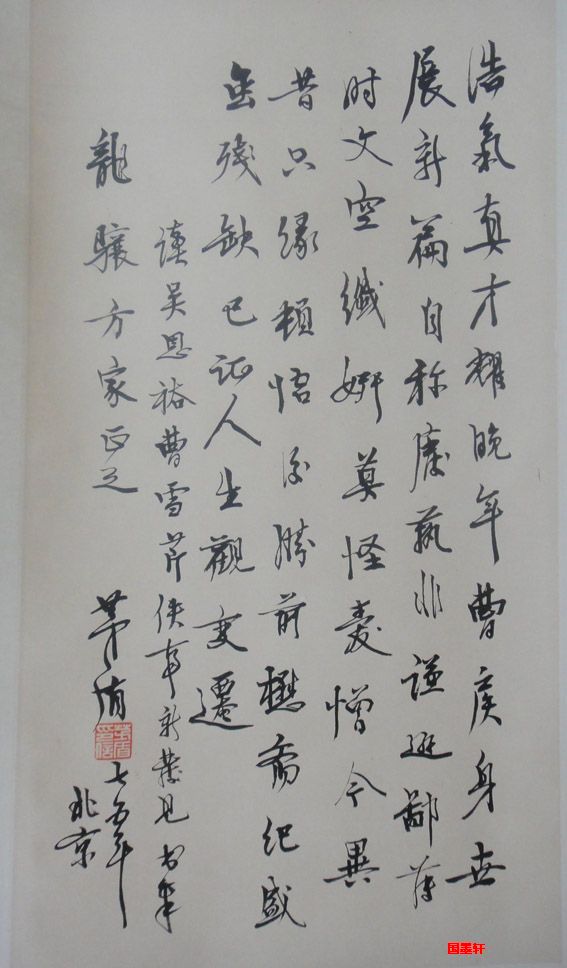 浩氣真才耀晚年曹侯身世
展新篇自称廢藝非謙遜鄙薄
时文空纖妍莫怪爱憎今異
昔只缘頓悟后勝前懋斋纪盛
虽残缺已证人生觀变遷
读吴恩裕曹雪芹佚事新發見书奉
龍驤方家正之
茅盾
七五年
北京
国墨轩